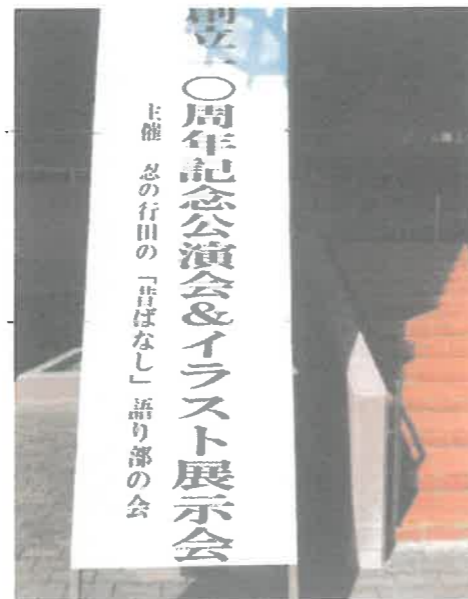 創立一〇周年記念公演会&イラスト展示会
主催 忍の行田の「昔ばなし」語り部の会